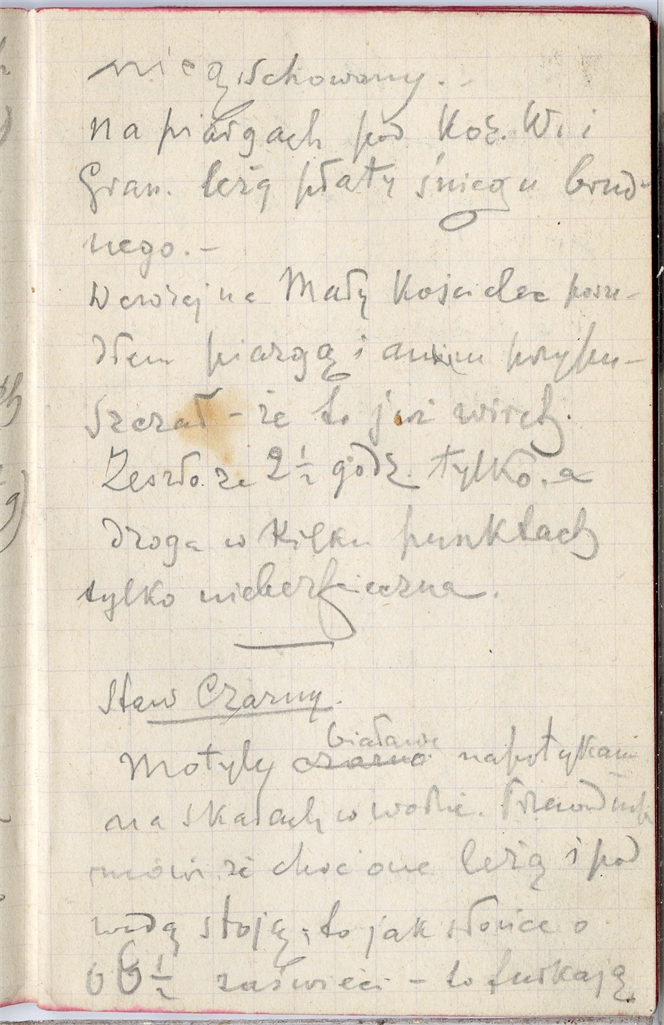 schowany. -
na piargach pod Koź. W. i
Gran. leżą płaty śniegu brud-
nego. -
Wczoraj na Mały Kościelec posze-
dłem piargą i anim przypu-
szczał - że to już wirch.
Zeszło ze 2 ½ godz. tylko. a
droga w kilku punktach
tylko niebezpieczna.
Staw Czarny.
Motyly czarne białawe napotykam
na skałach w wodzie. Przewodnik
mówi że choć one leżą i pod
wodą stoją, to jak słońce o
6 ½ zaświeci - to furkają